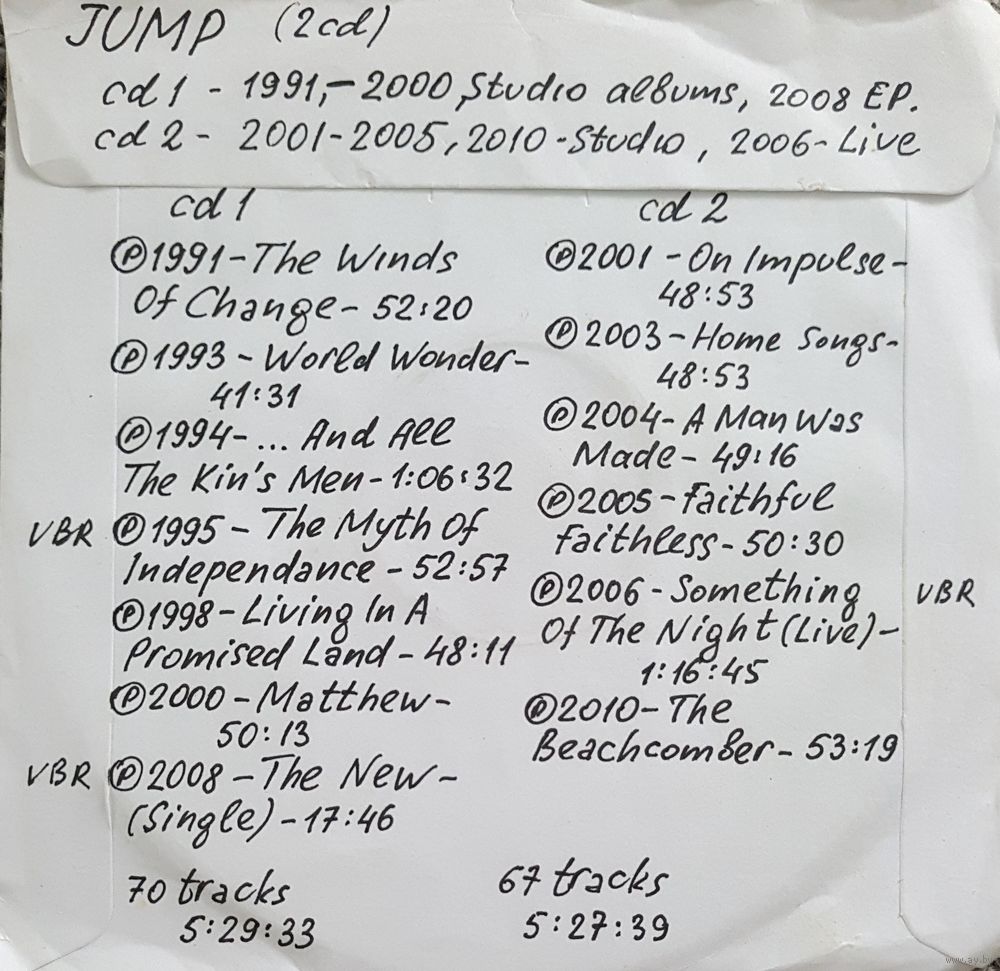 JUMP (2cd)
cd 1 - 1991,-2000, Studio albums, 2008 EP.
cd 2 - 2001-2005, 2010-Studio, 2006-Live
cd 1
Ⓟ1991-The Winds
Of Change- 52:20
Ⓟ1993-World Wonder-
41:31
Ⓟ1994-... And All
The Kin's Men-1:06:32
VBR Ⓟ1995-The Myth Of
Independance-52:57
Ⓟ1998-Living In A
Promised Land-48:11
Ⓟ2000-Matthew-
50:13
VBR Ⓟ2008-The New-
(Single)-17:46
70 tracks
5:29:33
cd 2
Ⓟ2001-On Impulse-
48:53
Ⓟ2003-Home Songs-
48:53
Ⓟ2004-A Man Was
Made-49:16
Ⓟ2005-Faithful
Faithless-50:30
Ⓟ2006-Something VBR
Of The Night(Live)-
1:16:45
Ⓟ2010-The
Beachcomber-53:19
67 tracks
5:27:39
www.ay.by